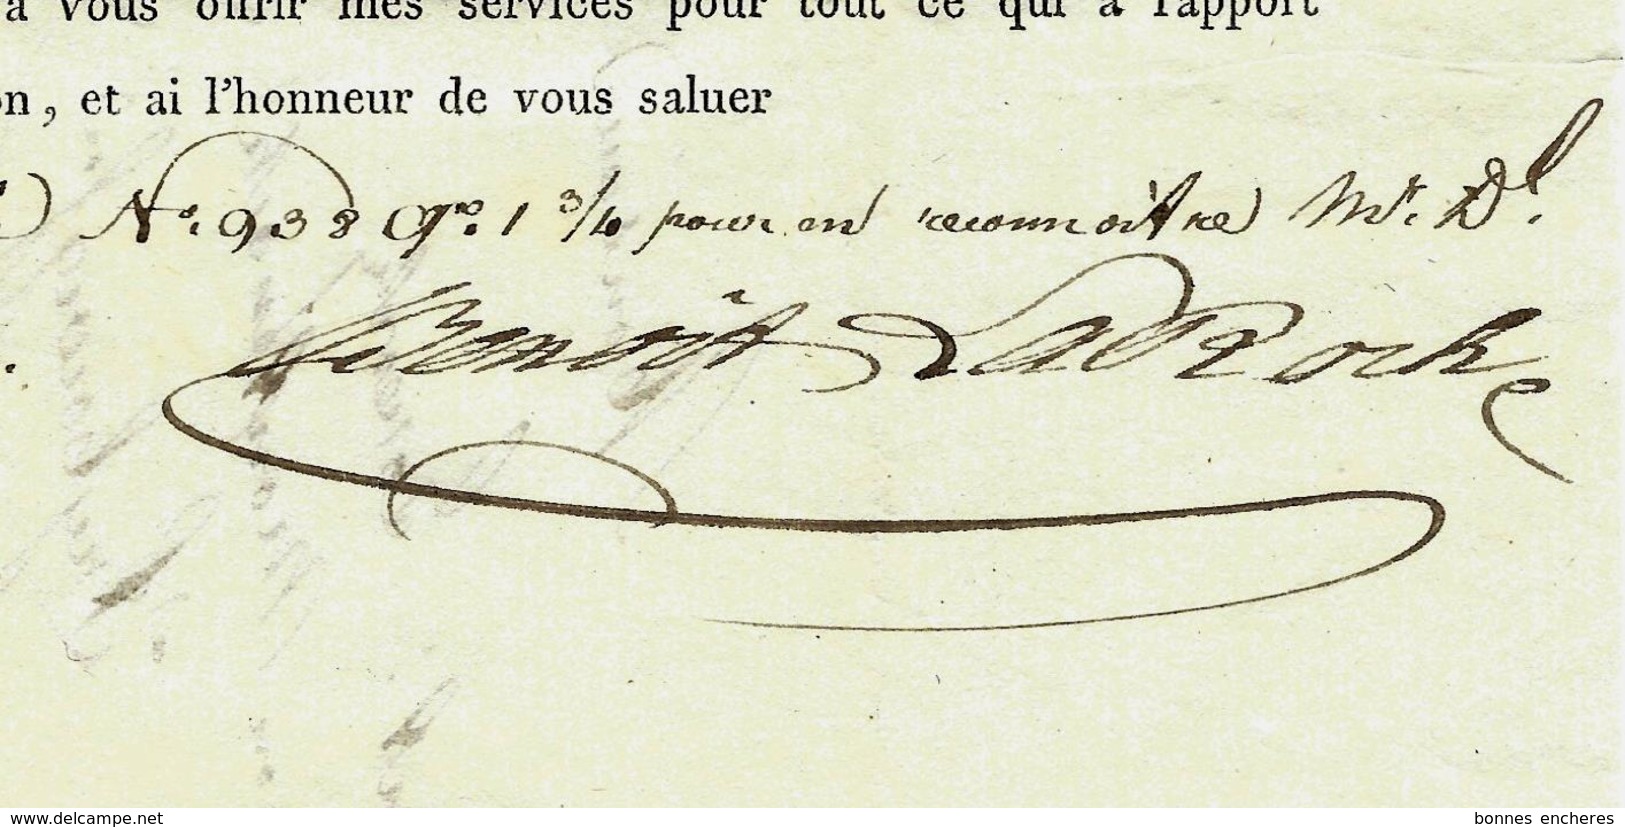 à vous offrir mes services pour tout ce qui a rapport
on, et ai l'honneur de vous saluer
No. 938 1 3/4 pour en reconnoitre Mr. D.
Benoit LaRoche
www.delcampe.net
bonnes encheres